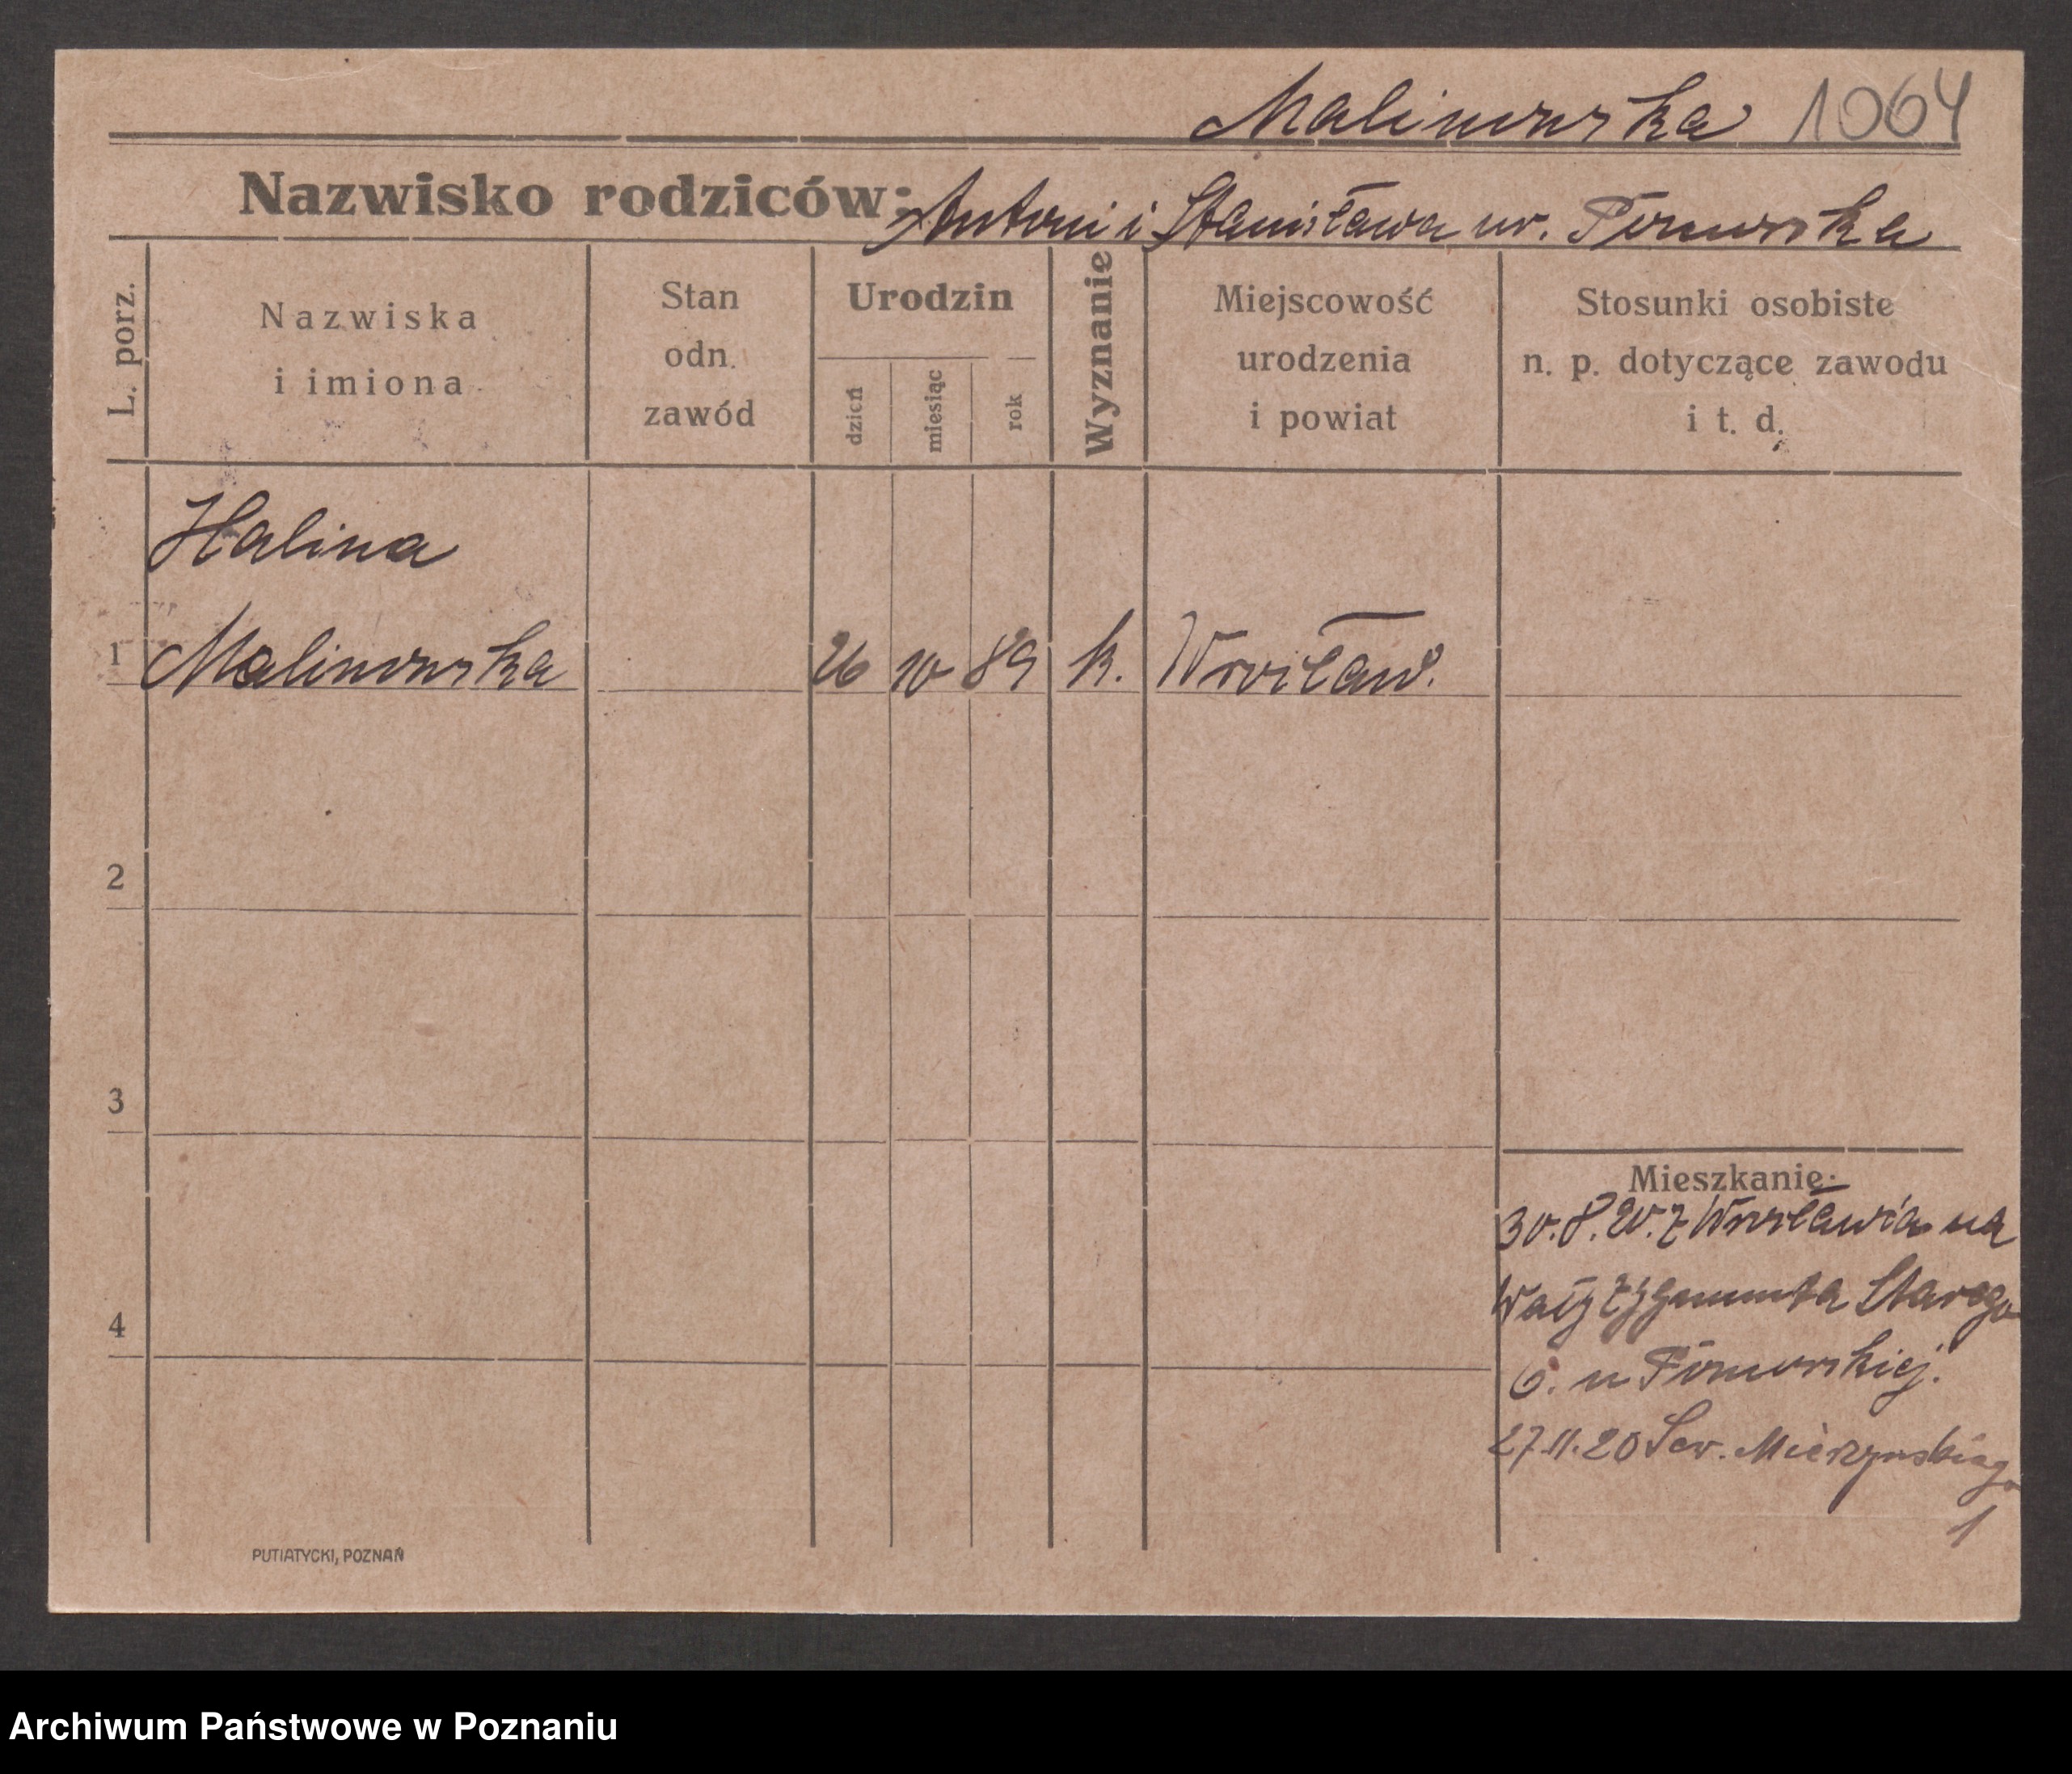 Malinowska 1064
Nazwisko rodziców: Antoni i Stanisława ur.
L. porz.
Nazwiska
i imiona
Stan
odn.
zawód
Urodzin
dzień
miesiąc
rok
Wyznanie
Miejscowość
urodzenia
i powiat
Stosunki osobiste
n. p. dotyczące zawodu
i t. d.
Halina
1 Malinowska 26 10 89 k. Wrocław.
2
3
4
Mieszkanie:
30.8.20. z Wrocławia na
Wały Zygmunta Starego
6. u
27.11.20 Sew. Mielżyńskiego
1
PUTIATYCKI, POZNAŃ
Archiwum Państwowe w Poznaniu